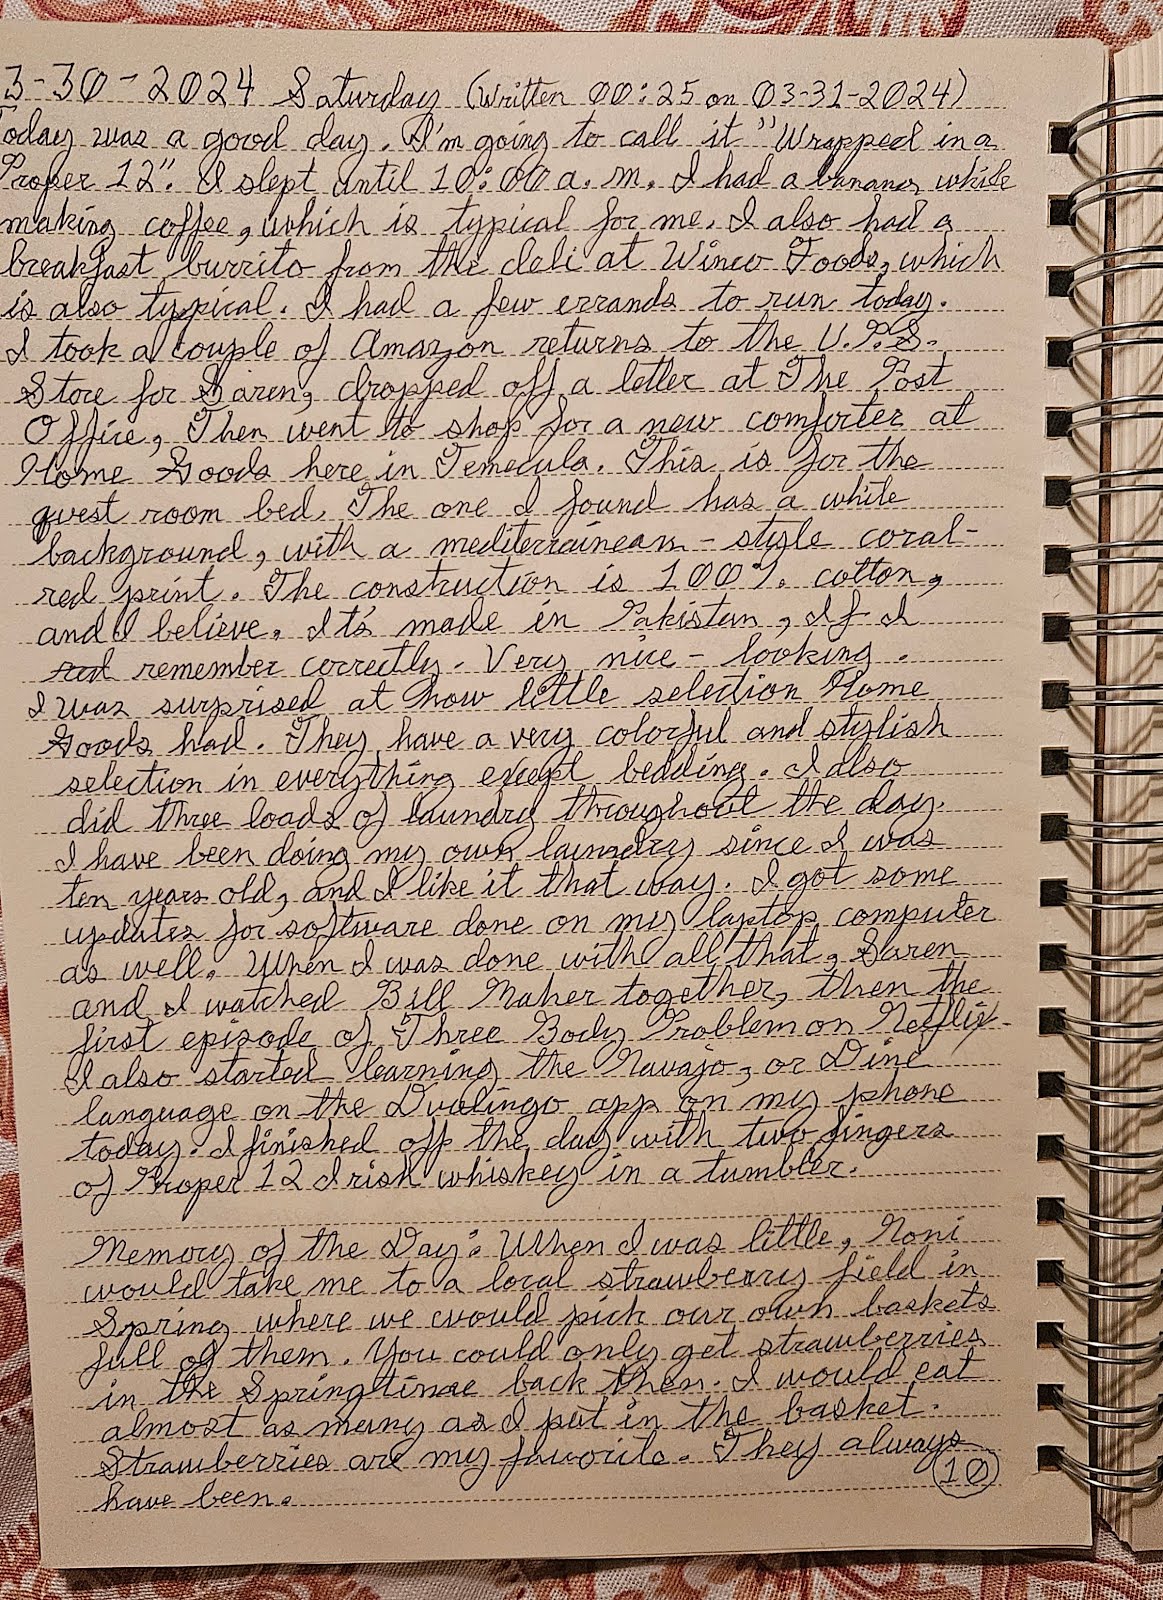 3-30-2024 Saturday (Written 00:25 on 03-31-2024)
Today was a good day. I'm going to call it "Wrapped in a
Proper 12". I slept until 10:00 a.m. I had a banana while
making coffee, which is typical for me. I also had a
breakfast burrito from the deli at Winco Foods, which
is also typical. I had a few errands to run today.
I took a couple of Amazon returns to the U.P.S.
Store for Saren, dropped off a letter at The Post
Office, Then went to shop for a new comforter at
Home Goods here in Temecula. This is for the
guest room bed. The one I found has a white
background, with a mediterrainean-style coral-
red print. The construction is 100% cotton,
and I believe. It's made in Pakistan, If I
remember correctly. Very nice-looking.
I was surprised at how little selection Home
Goods had. They have a very colorful and stylish
selection in everything except bedding. I also
did three loads of laundry throughout the day.
I have been doing my own laundry since I was
ten years old, and I like it that way. I got some
updates for software done on my laptop computer
as well. When I was done with all that, Saren
and I watched Bill Maher together, then the
first episode of Three Body Problem on Netflix.
I also started learning the Navajo, or Diné
language on the Duolingo app on my phone
today. I finished off the day with two fingers
of Proper 12 Irish whiskey in a tumbler.
Memory of the Day: When I was little, Noni
would take me to a local strawberry field in
Spring where we would pick our own baskets
full of them. You could only get strawberries
in the Springtime back then. I would eat
almost as many as I put in the basket.
Strawberries are my favorite. They always
have been.
10